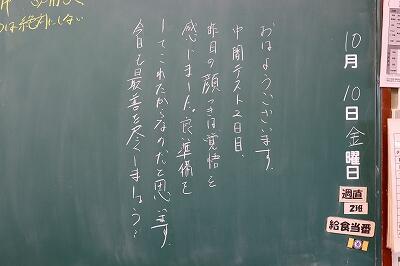 10月10日金曜日
週直
2班
給食当番
おはようございます。
中間テスト2日目。
昨日の顔つきは覚悟を
感じました。良い準備を
してこれたからなのだと思います。
今日も最善を尽くしましょう!
は絶対にしない